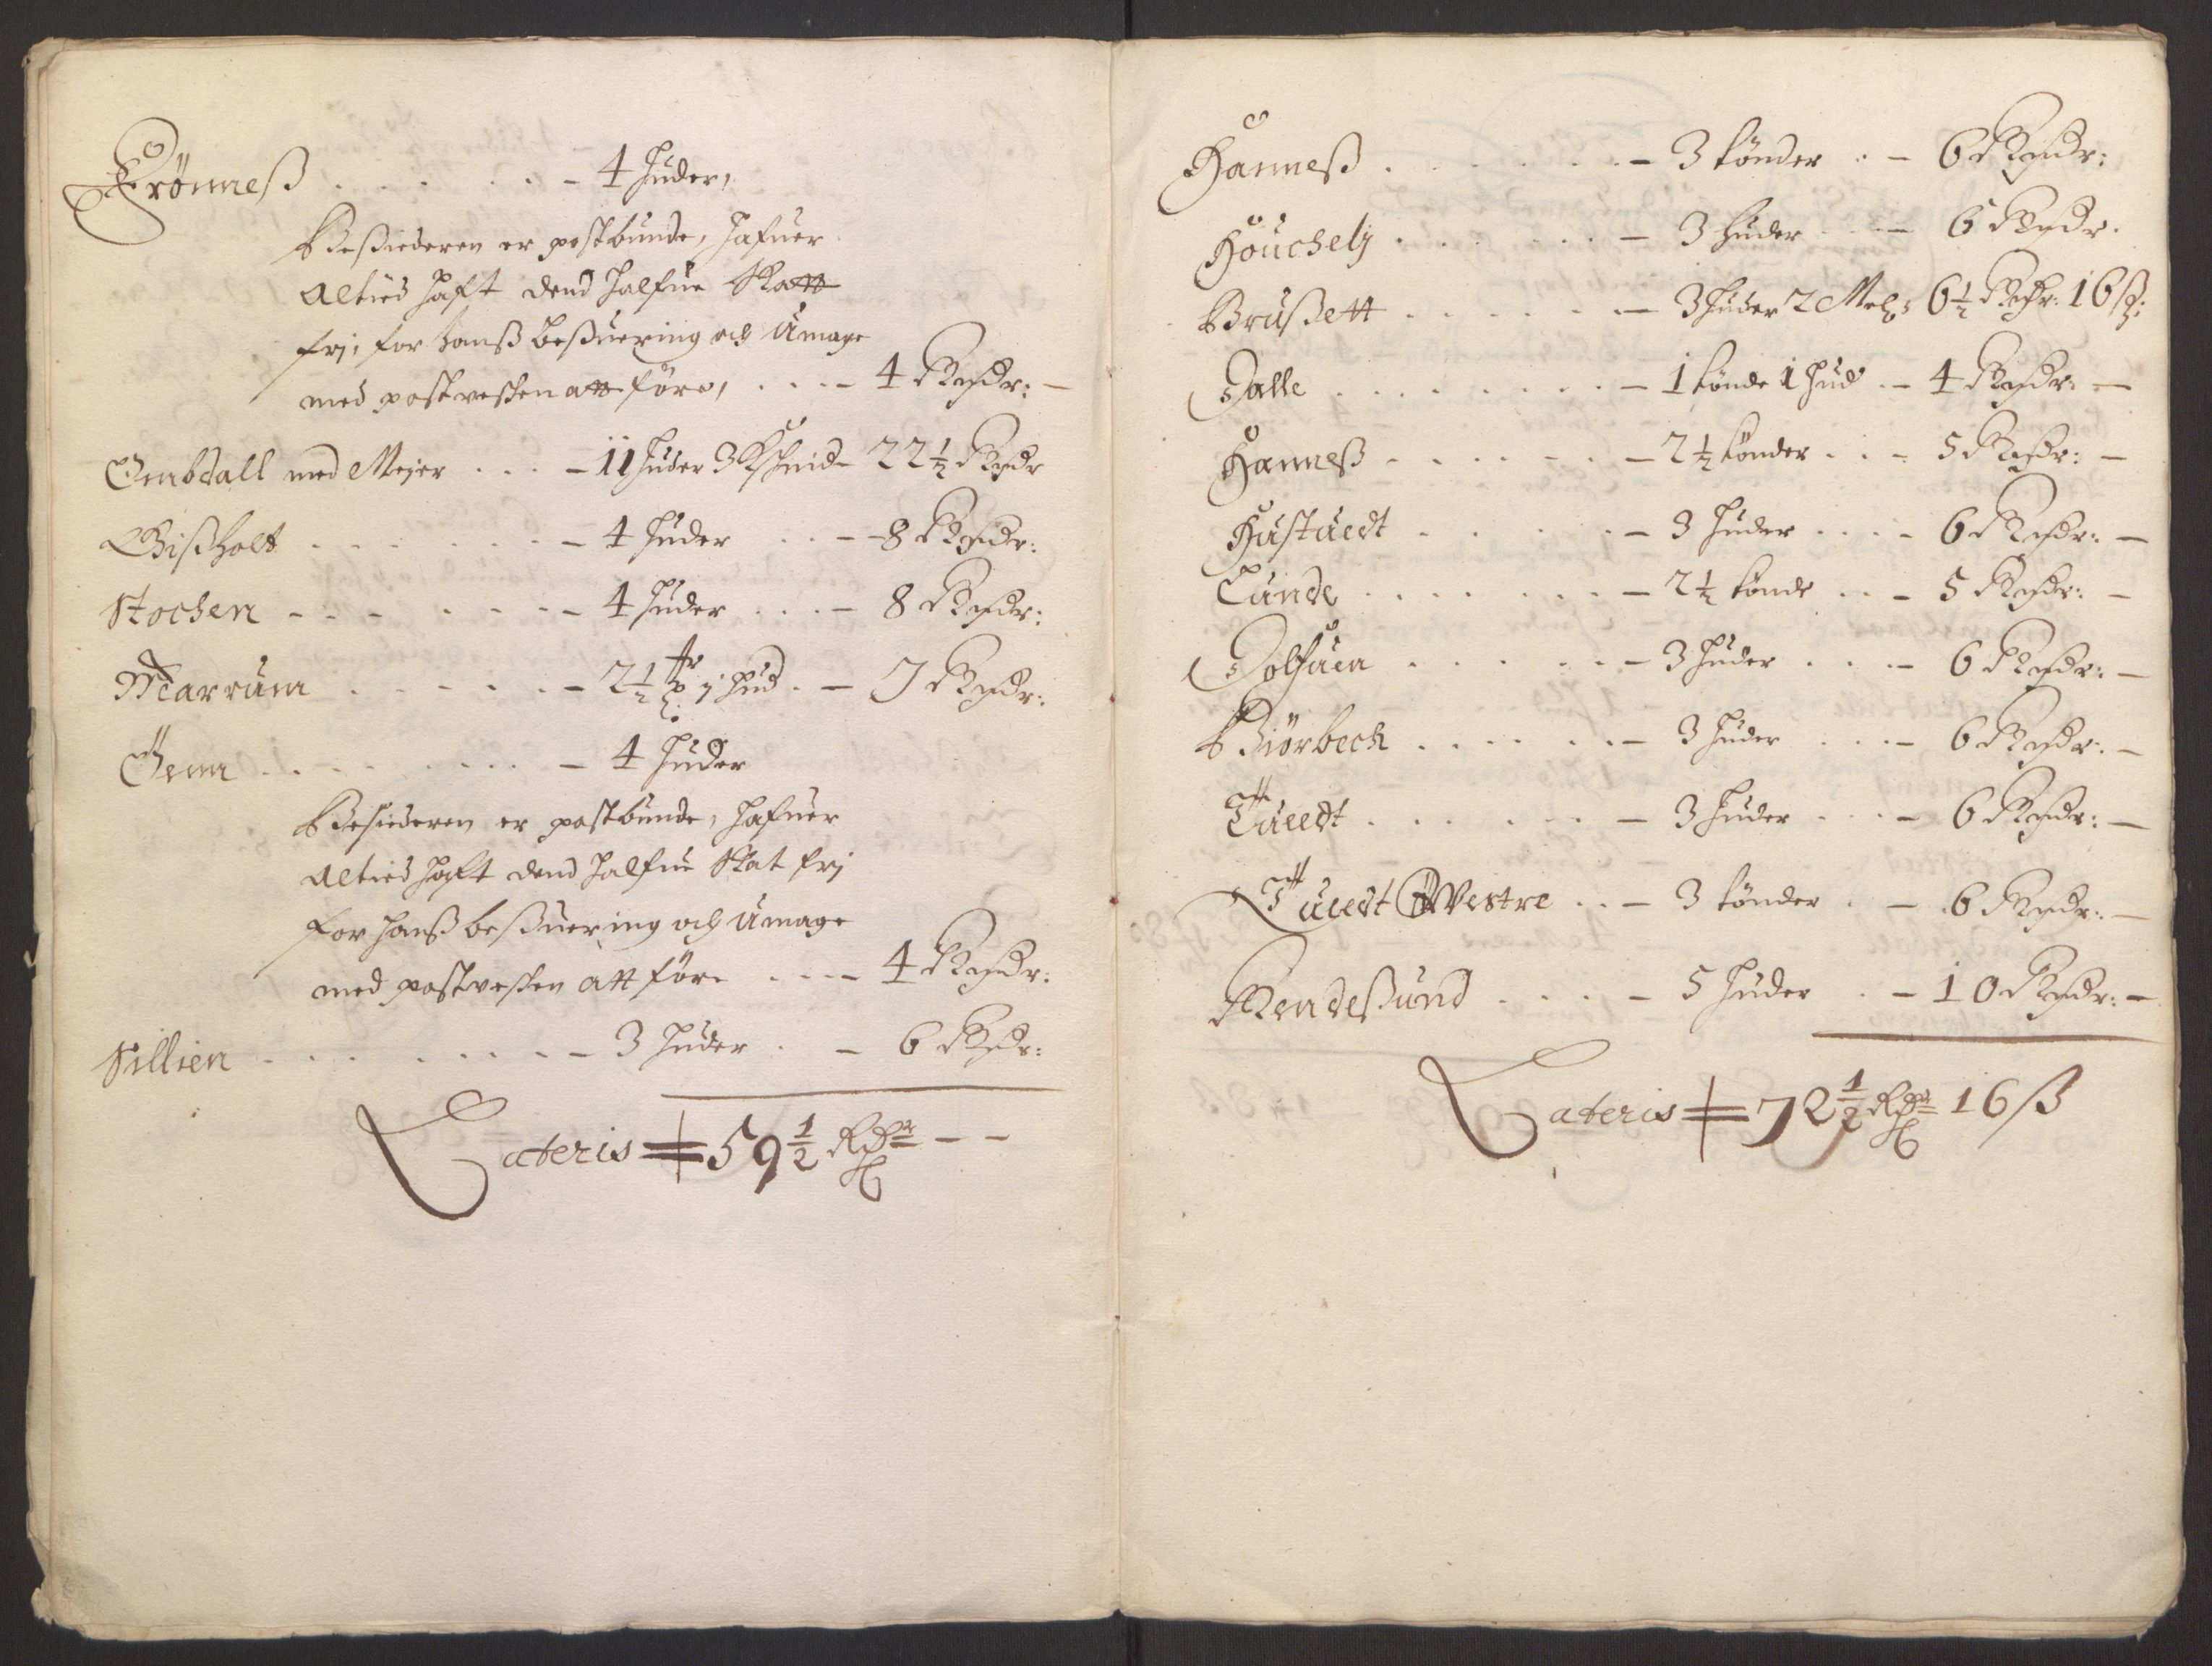 Trönneß . . . . . . - 4 huder,
Beßiederen er postbunde, hafuer
altiid haft dend halfue Skatt
frj, for hanß beßuering och Umage
med postveßen att före, . . . - 4 Rixdr: -
Embdall med Mejer . . . - 11 huder 3 Kschind - 22½ Rixdr
Gißholt . . . . . . - 4 huder . . - 8 Rixdr:
Stochen - - - - - - - 4 huder . . . - 8 Rixdr:
Marrum . . . . . - 2½ 1 hud . - 7 Rixdr:
. . . . . . . . - 4 huder
Besiederen er postbunde, hafuer
altiid haft dend halfue Skat frj
for hanß beßuering och Umage
med postveßen att före . . . - 4 Rixdr:
Sillien - . . . . . - - 3 huder . - 6 Rixdr:
Lateris = 59½ Rdr - -
Hanneß . . . . . . - 3 tönder . - 6 Rixdr:
Houchelj . . . . . . - 3 huder . . - 6 Rixdr.
Brußett . . . . . . - 3 huder 2 Mel: 6½ Rixdr: 16 ß:
Dalle . . . . . . . - 1 tönde 1 hud . - 4 Rixdr: -
Hanneß - . . . . . - 2½ tönder . . - 5 Rixdr: -
Hustuedt . . . . . - 3 huder . . . - 6 Rixdr: -
Lunde . . . . . . . - 2½ tönde . . - 5 Rixdr: -
Dolfuen . . . . . - 3 huder . . . - 6 Rixdr: -
Biörbech . . . . . - 3 huder . . . - 6 Rixdr: -
Tuedt . . . . . . - 3 huder . . . - 6 Rixdr: -
Tuedt Westre . . - 3 tönder . - 6 Rixdr: -
Rendeßund . . . . - 5 huder . - 10 Rixdr: -
Lateris = 72½ Rdr 16 ß